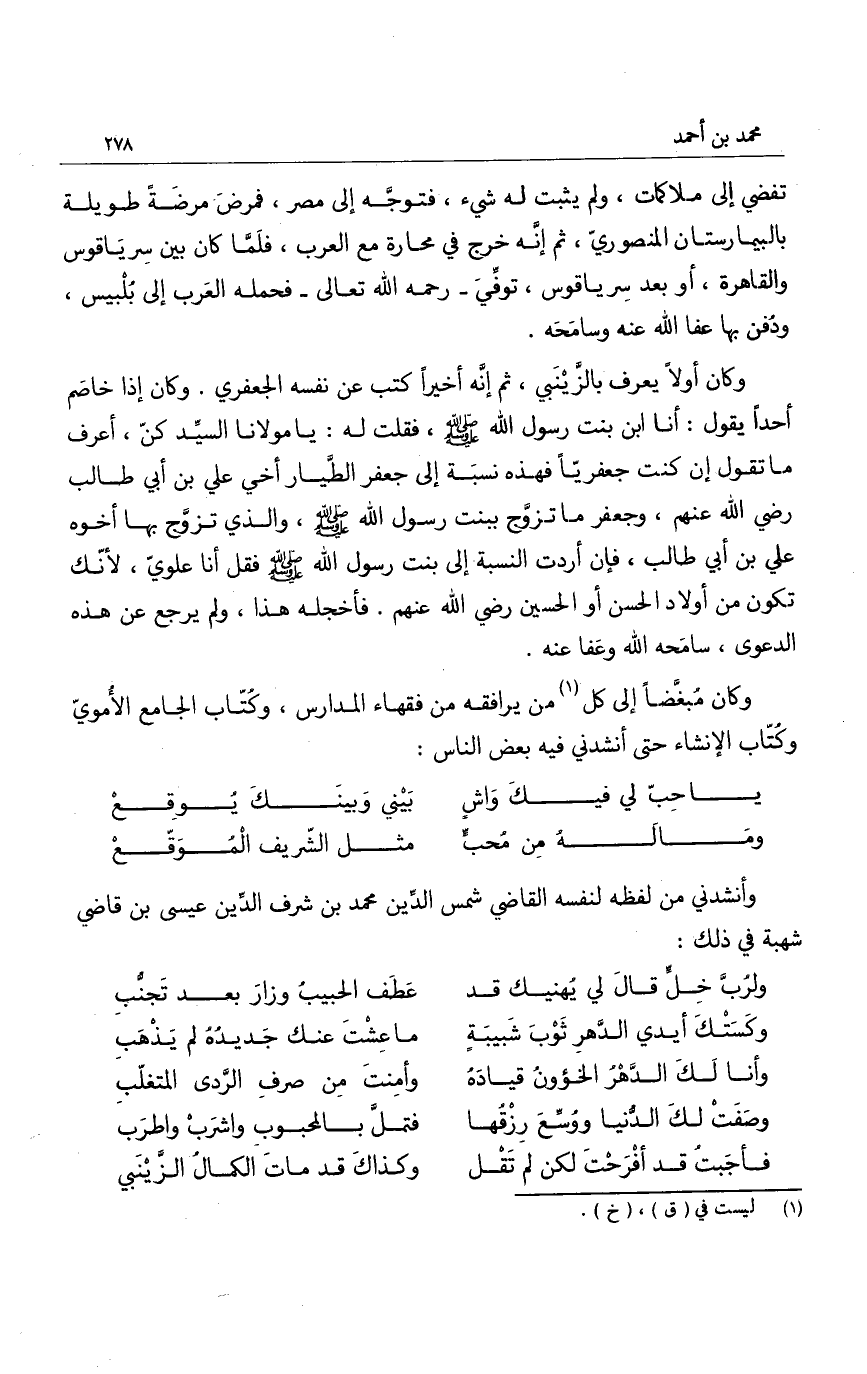 محمد بن أحمد ٢٧٨
تفضي إلى ملاكمات ، ولم يثبت له شيء ، فتوجَّه إلى مصر ، فمرضَ مرضَةً طويلة
بالبيمارستان المنصوريّ ، ثم إنَّه خرج في محارة مع العرب ، فلَمَّا كان بين سِرياقوس
والقاهرة ، أو بعد سرياقوس ، توفِّيَ ـ رحمه الله تعالى ـ فحمله العَرب إلى بُلْبيس ،
ودُفن بها عفا الله عنه وسامَحَه .
وكان أولاً يعرف بالزَّيْنَبي ، ثم إنَّه أخيراً كتب عن نفسه الجعفري . وكان إذا خاصَم
أحداً يقول : أنا ابن بنت رسول الله ﷺ ، فقلت له : يامولانا السيِّد كنّ ، أعرف
ماتقول إن كنت جعفريّاً فهذه نسبَة إلى جعفر الطَّيار أخي علي بن أبي طالب
رضي الله عنهم ، وجعفر ماتزوَّج ببنت رسول الله ﷺ ، والذي تزوَّج بها أخوه
علي بن أبي طالب ، فإن أردت النسبة إلى بنت رسول الله ﷺ فقل أنا علويّ ، لأنّك
تكون من أولاد الحسن أو الحسين رضي الله عنهم . فأخجله هذا ، ولم يرجع عن هذه
الدعوى ، سامَحه الله وعَفا عنه .
وكان مُبغَّضاً إلى كل(١) من يرافقه من فقهاء المدارس ، وكُتّاب الجامع الأُمويّ
وكُتّاب الإنشاء حتى أنشدني فيه بعض الناس :
ياحِبّ لي فيكَ وَاشٍ بَيْني وَبينَكَ يُوقِعْ
ومَالَهُ مِن مُحبٍّ مثل الشّريف الْمُوَقّعْ
وأنشدني من لفظه لنفسه القاضي شمس الدّين محمد بن شرف الدّين عيسى بن قاضي
شهبة في ذلك :
ولرُبَّ خِلٍّ قالَ لي يُهنيك قد عَطَف الحبيبُ وزارَ بعد تَجنُّبِ
وكَسَتْكَ أيدي الدَّهرِ ثَوْبَ شَبيبَةٍ ماعِشْتَ عنك جَديدُهُ لم يَذْهَبِ
وأنا لَكَ الدَّهْرُ الخؤونُ قيادَهُ وأمِنتَ مِن صرفِ الرَّدى المتغلّبِ
وصَفَتْ لكَ الدُّنيا ووُسِّعَ رِزْقُها فتملَّ بالمحبوبِ واشرَبْ واطرَبِ
فأجَبتُ قد أفْرَحْتَ لكن لم تَقُل وكذاكَ قد ماتَ الكمالُ الزَّيْنَبي
(١) ليست في ( ق ) ، ( خ ) .